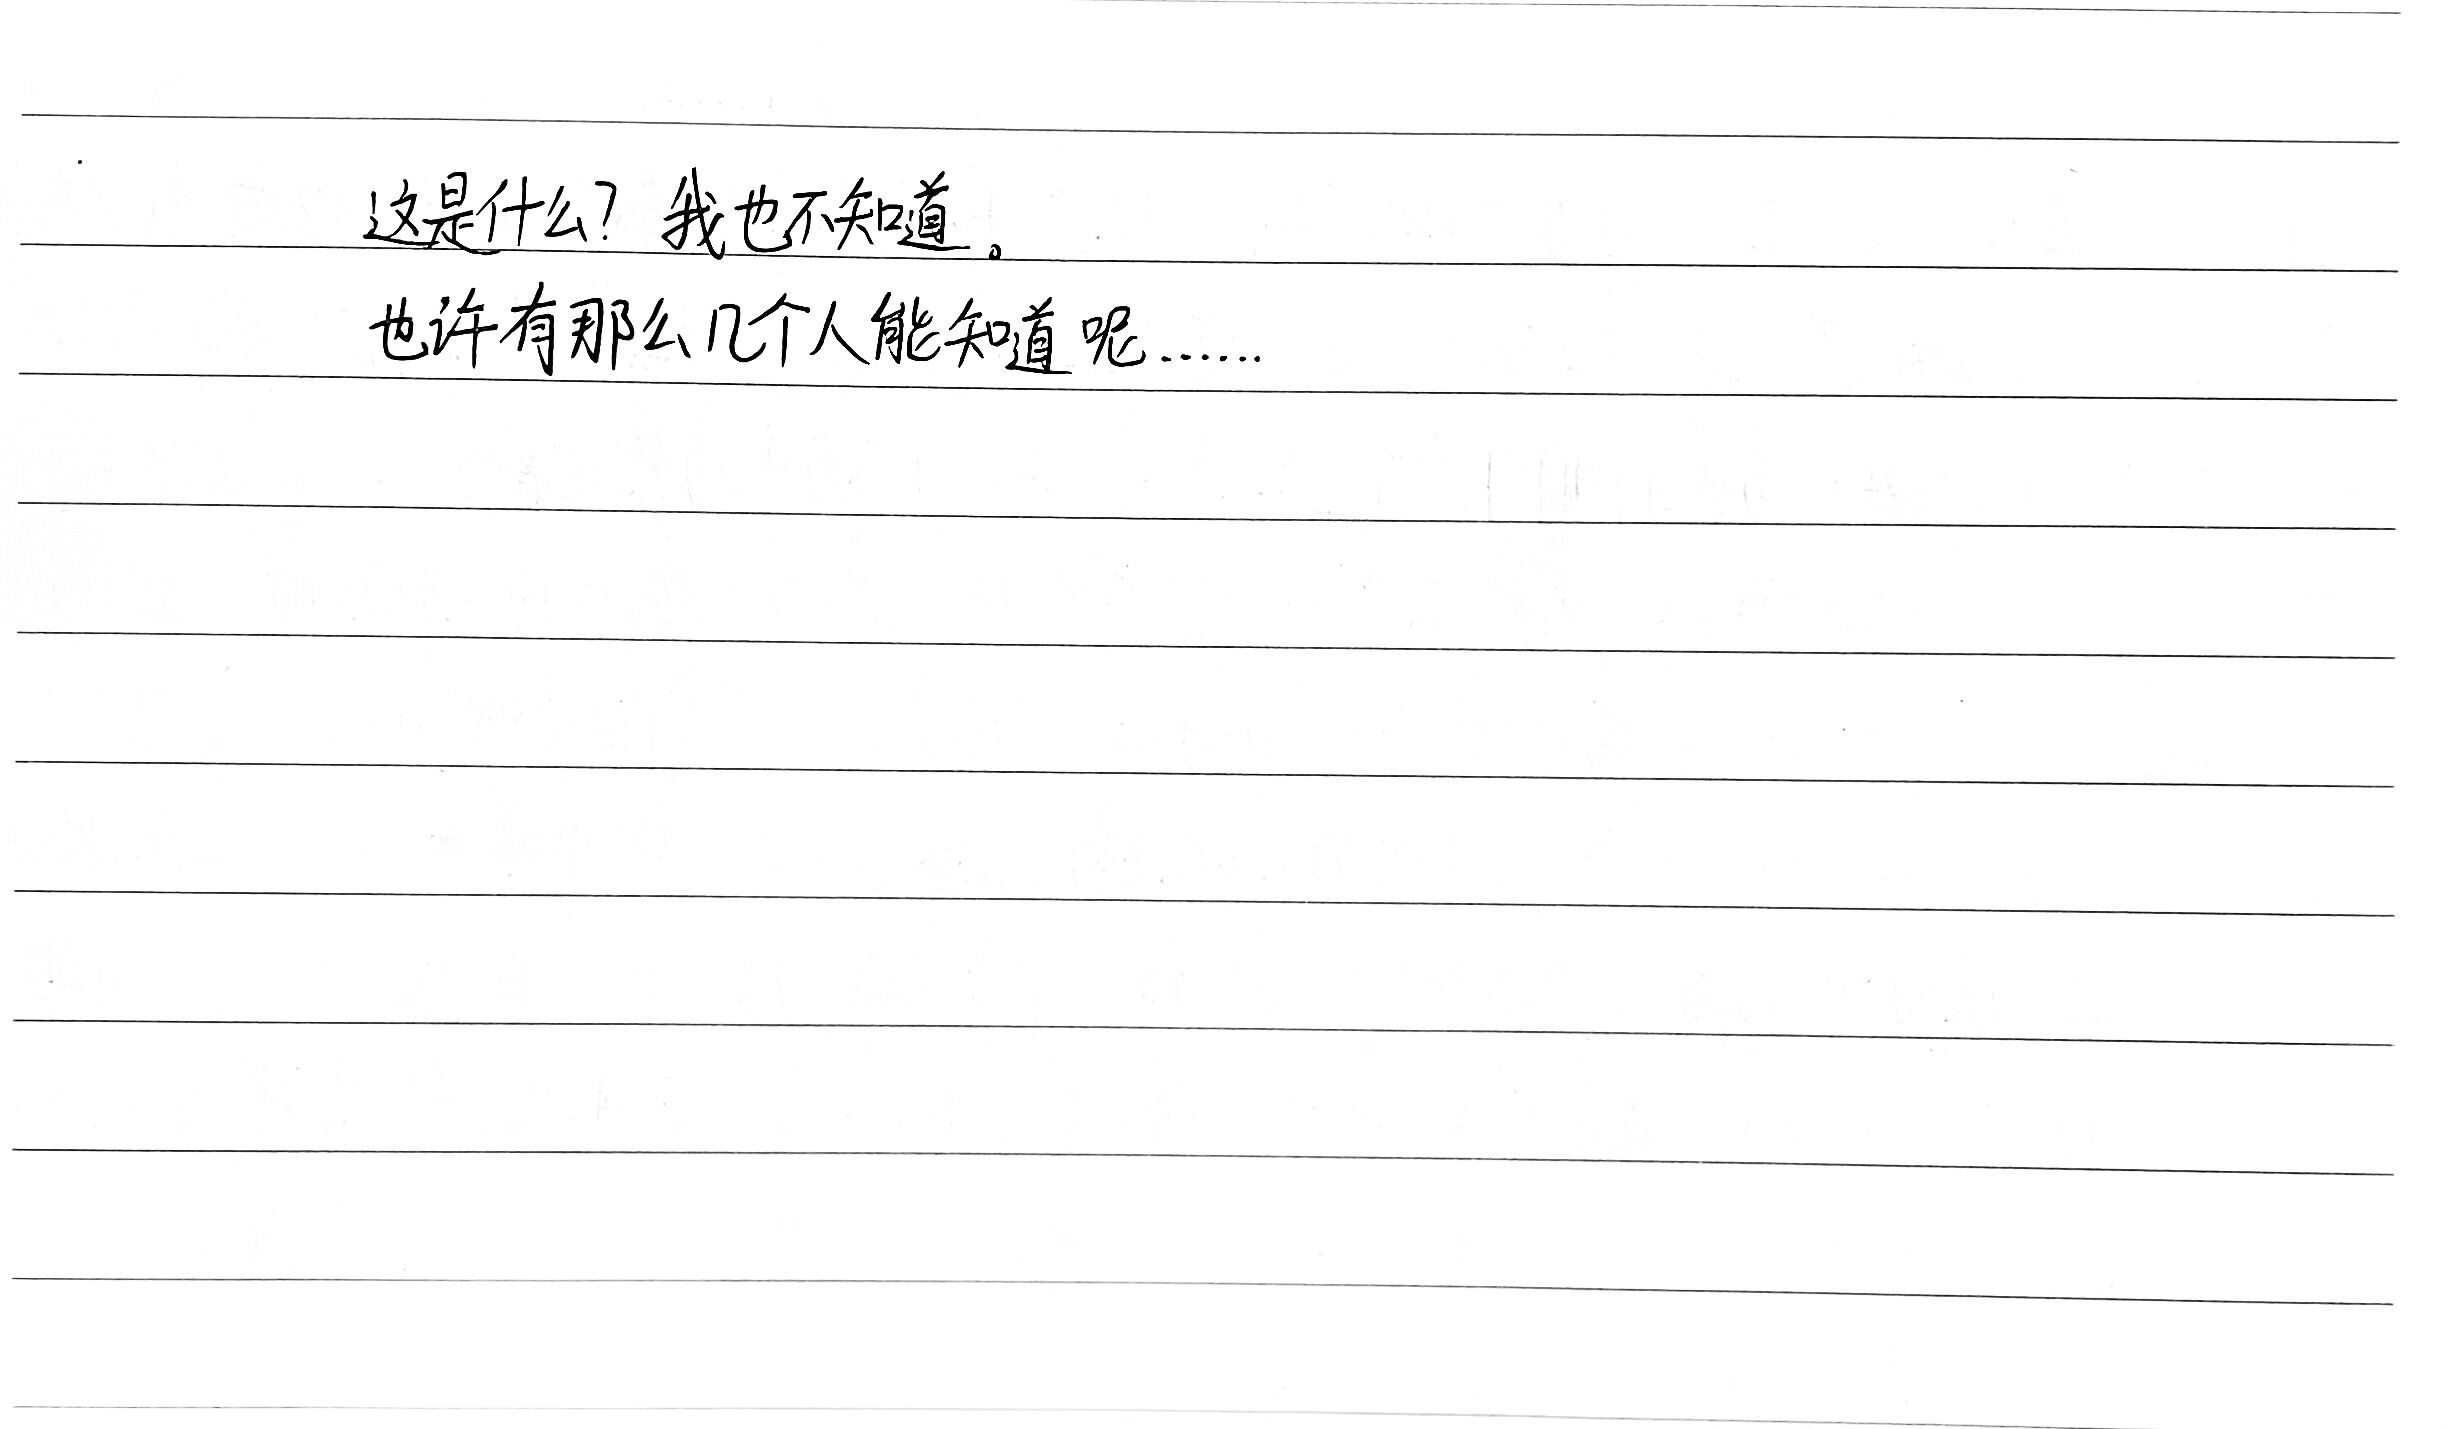 这是什么？我也不知道。
也许有那么几个人能知道呢……